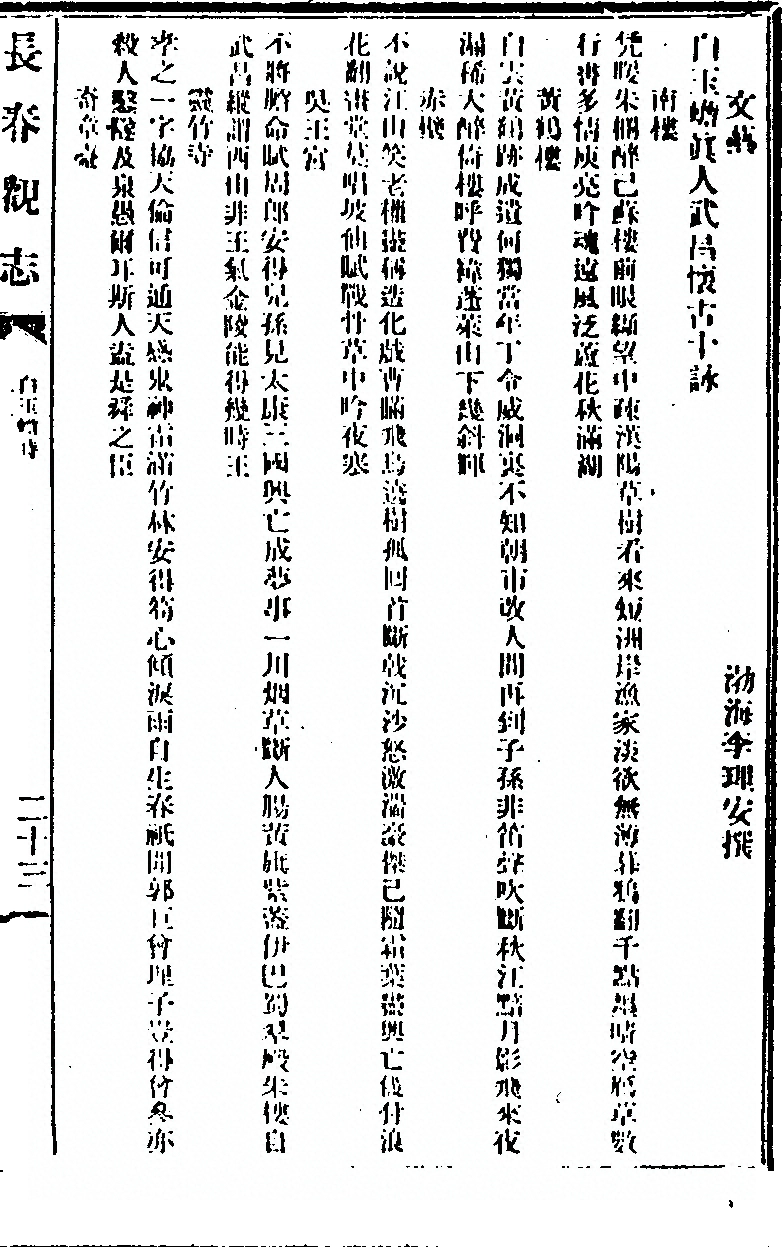 文藝 渤海李理安撰
白玉蟾真人武昌懷古十詠
南樓
凭暖朱欄醉已蘇樓前眼纈望中疎漢陽草樹看來短洲岸漁家淡欲無薄暮鴉翻千點墨晴空鴈草數
行書多情庾亮吟魂遠風泛蘆花秋滿湖
黃鶴樓
白雲黃鶴跡成遺何獨當年丁令威洞裏不知朝市改人間再到子孫非笛聲吹斷秋江黯月影飛來夜
漏稀大醉倚樓呼費禕蓬萊山下幾斜暉
赤壁
不說江山笑老權謾稱造化戲曹瞞飛烏遶樹孤回首斷戟沉沙怒激湍豪傑已隨霜葉盡興亡俱付浪
花翻畫堂莫唱坡仙賦戰骨草中吟夜寒
吳王宮
不將膽命賦周郎安得兒孫見太康三國興亡成夢事一川烟草斷人腸黃旗紫蓋伊巴蜀翠殿朱樓自
武昌縱謂西山非王氣金陵能得幾時王
靈竹寺
孝之一字協天倫信可通天感鬼神雷滿竹林安得筍心傾淚雨自生春祇聞郭巨曾埋子豈得曾參亦
殺人鑿隧及泉愚爾耳斯人盍是舜之臣
奇章臺
長春觀志
白玉蟾詩
二十三